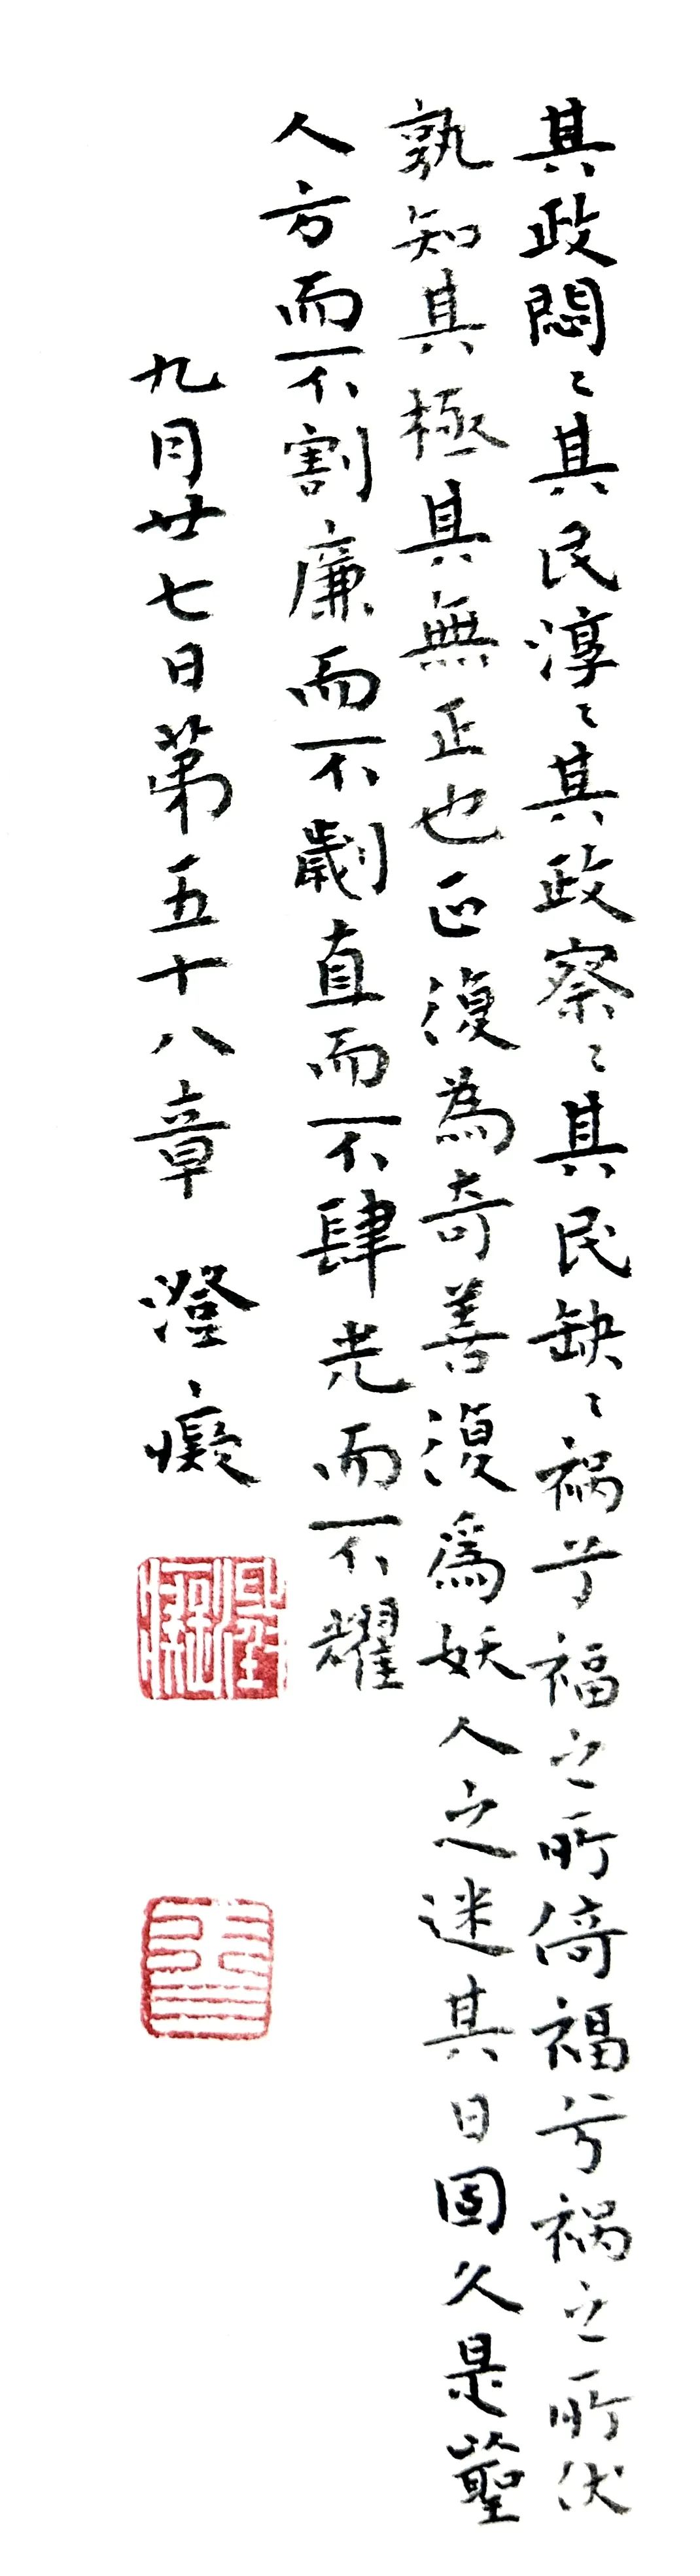 其政悶〻其民淳〻其政察〻其民缺〻禍兮福之所倚福兮禍之所伏
孰知其極其無正也正復為奇善復爲妖人之迷其日固久是以聖
人方而不割廉而不劌直而不肆光而不耀
九月廿七日第五十八章 澄癡